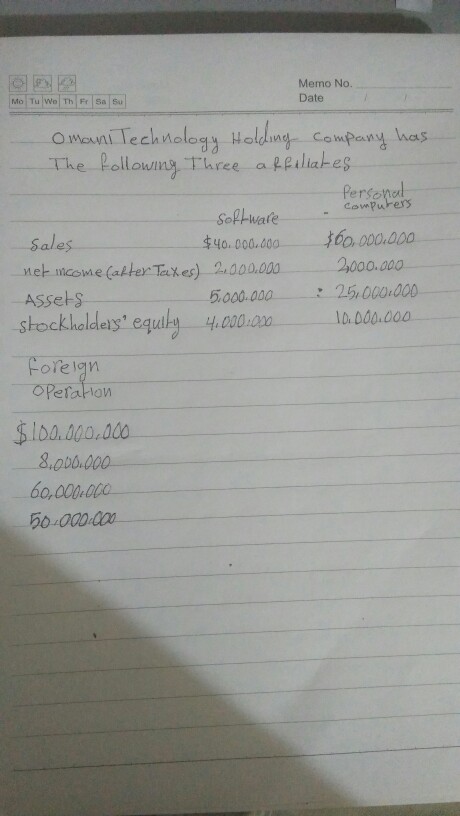 Memo No.
Mo Tu We Th Fr Sa Su
Date / /
Omani Technology Holding company has
The following Three affiliates
Software Personal computers
Sales $40.000.000 $60,000.000
net income (after Taxes) 2.000.000 2,000.000
Assets 5.000.000 : 25,000,000
stockholders' equity 4.000.000 10.000.000
foreign
operation
$100.000.000
8.000.000
60,000,000
50.000.000